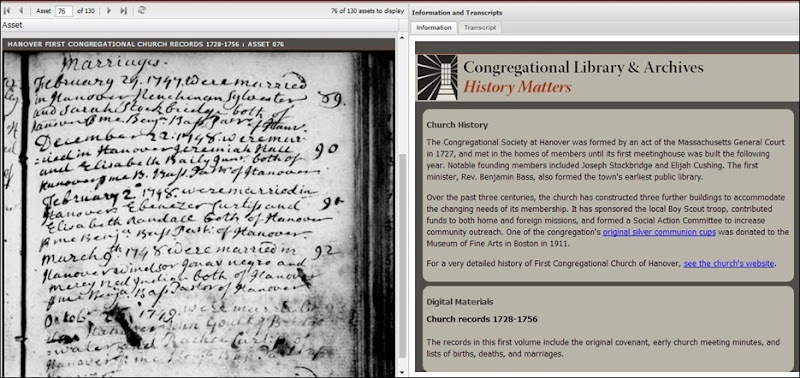 Asset 76 of 130
76 of 130 assets to display
Asset
HANOVER FIRST CONGREGATIONAL CHURCH RECORDS 1728-1756 : ASSET 076
Marriages.
February 29. 1747. were married
in Hanover Henchman Sylvester
and Sarah Stockbridge both of
Hanover P me Benj. Bass Pastr. of Hanr.
89.
December 22. 1748. were mar-
ried in Hanover Jeremiah Hall
and Elisabeth Baily Junr. both of
Hanover P me B. Bass Pastr. of Hanover
90
February 2d 1748. were married in
Hanover Ebenezer Curtis and
Elisabeth Randall both of Hanover
P me Benja. Bass Pastr. of Hanover
91
March 9th 1748 were married in
Hanover Windsor Jonas negro and
mercy Red Indian both of Hanover
P me Benja Bass Pastor of Hanover
92
1749. were married
Hanover John Gould of
and Rachel
Hanover P me Bass Pastr of Hanover
Information and Transcripts
Information Transcript
Congregational Library & Archives
History Matters
Church History
The Congregational Society at Hanover was formed by an act of the Massachusetts General Court
in 1727, and met in the homes of members until its first meetinghouse was built the following
year. Notable founding members included Joseph Stockbridge and Elijah Cushing. The first
minister, Rev. Benjamin Bass, also formed the town's earliest public library.
Over the past three centuries, the church has constructed three further buildings to accommodate
the changing needs of its membership. It has sponsored the local Boy Scout troop, contributed
funds to both home and foreign missions, and formed a Social Action Committee to increase
community outreach. One of the congregation's original silver communion cups was donated to the
Museum of Fine Arts in Boston in 1911.
For a very detailed history of First Congregational Church of Hanover, see the church's website.
Digital Materials
Church records 1728-1756
The records in this first volume include the original covenant, early church meeting minutes, and
lists of births, deaths, and marriages.